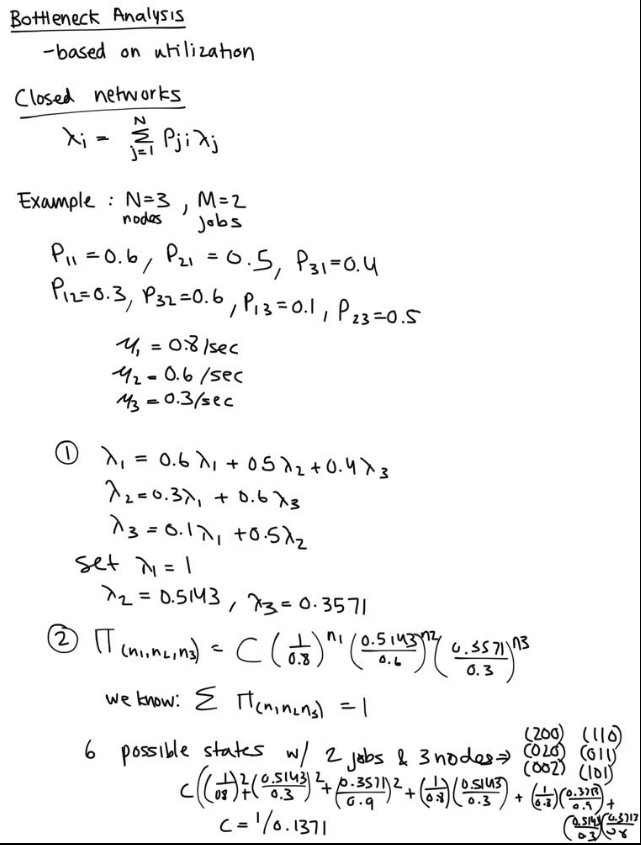 Bottleneck Analysis
-based on utilization
Closed networks
λi = N Σ j=1 Pji λj
Example : N=3 nodes , M=2 jobs
P11 = 0.6, P21 = 0.5, P31=0.4
P12=0.3, P32=0.6, P13=0.1, P23=0.5
μ1 = 0.8/sec
μ2 = 0.6/sec
μ3 = 0.3/sec
① λ1 = 0.6λ1 + 05λ2+0.4λ3
λ2=0.3λ1 + 0.6λ3
λ3 = 0.1λ1 +0.5λ2
set λ1 = 1
λ2 = 0.5143, λ3=0.3571
② Π(n1,n2,n3) = C (1/0.8)^n1 (0.5143/0.6)^n2 (0.3571/0.3)^n3
we know: Σ Π(n1n2n3) = 1
6 possible states w/ 2 jobs & 3 nodes → (200) (110)
(020) (011)
(002) (101)
C((1/08)^2+(0.5143/0.3)^2+(0.3571/0.9)^2+(1/0.8)(0.5143/0.3) + (1/0.8)(0.3713/0.9)+
C = 1/0.1371